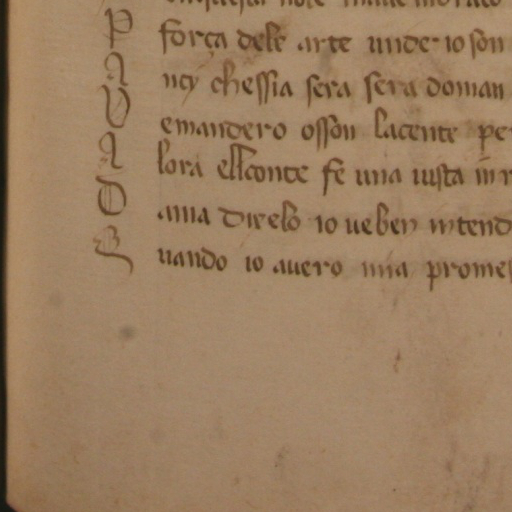 P força dele arte unde io son
A ncy chessia sera sera doman
D emandero osson lacente pe
A lora ellconte fe una uista in
D ama direlo io ue ben intend
Q uando io auero mia prome